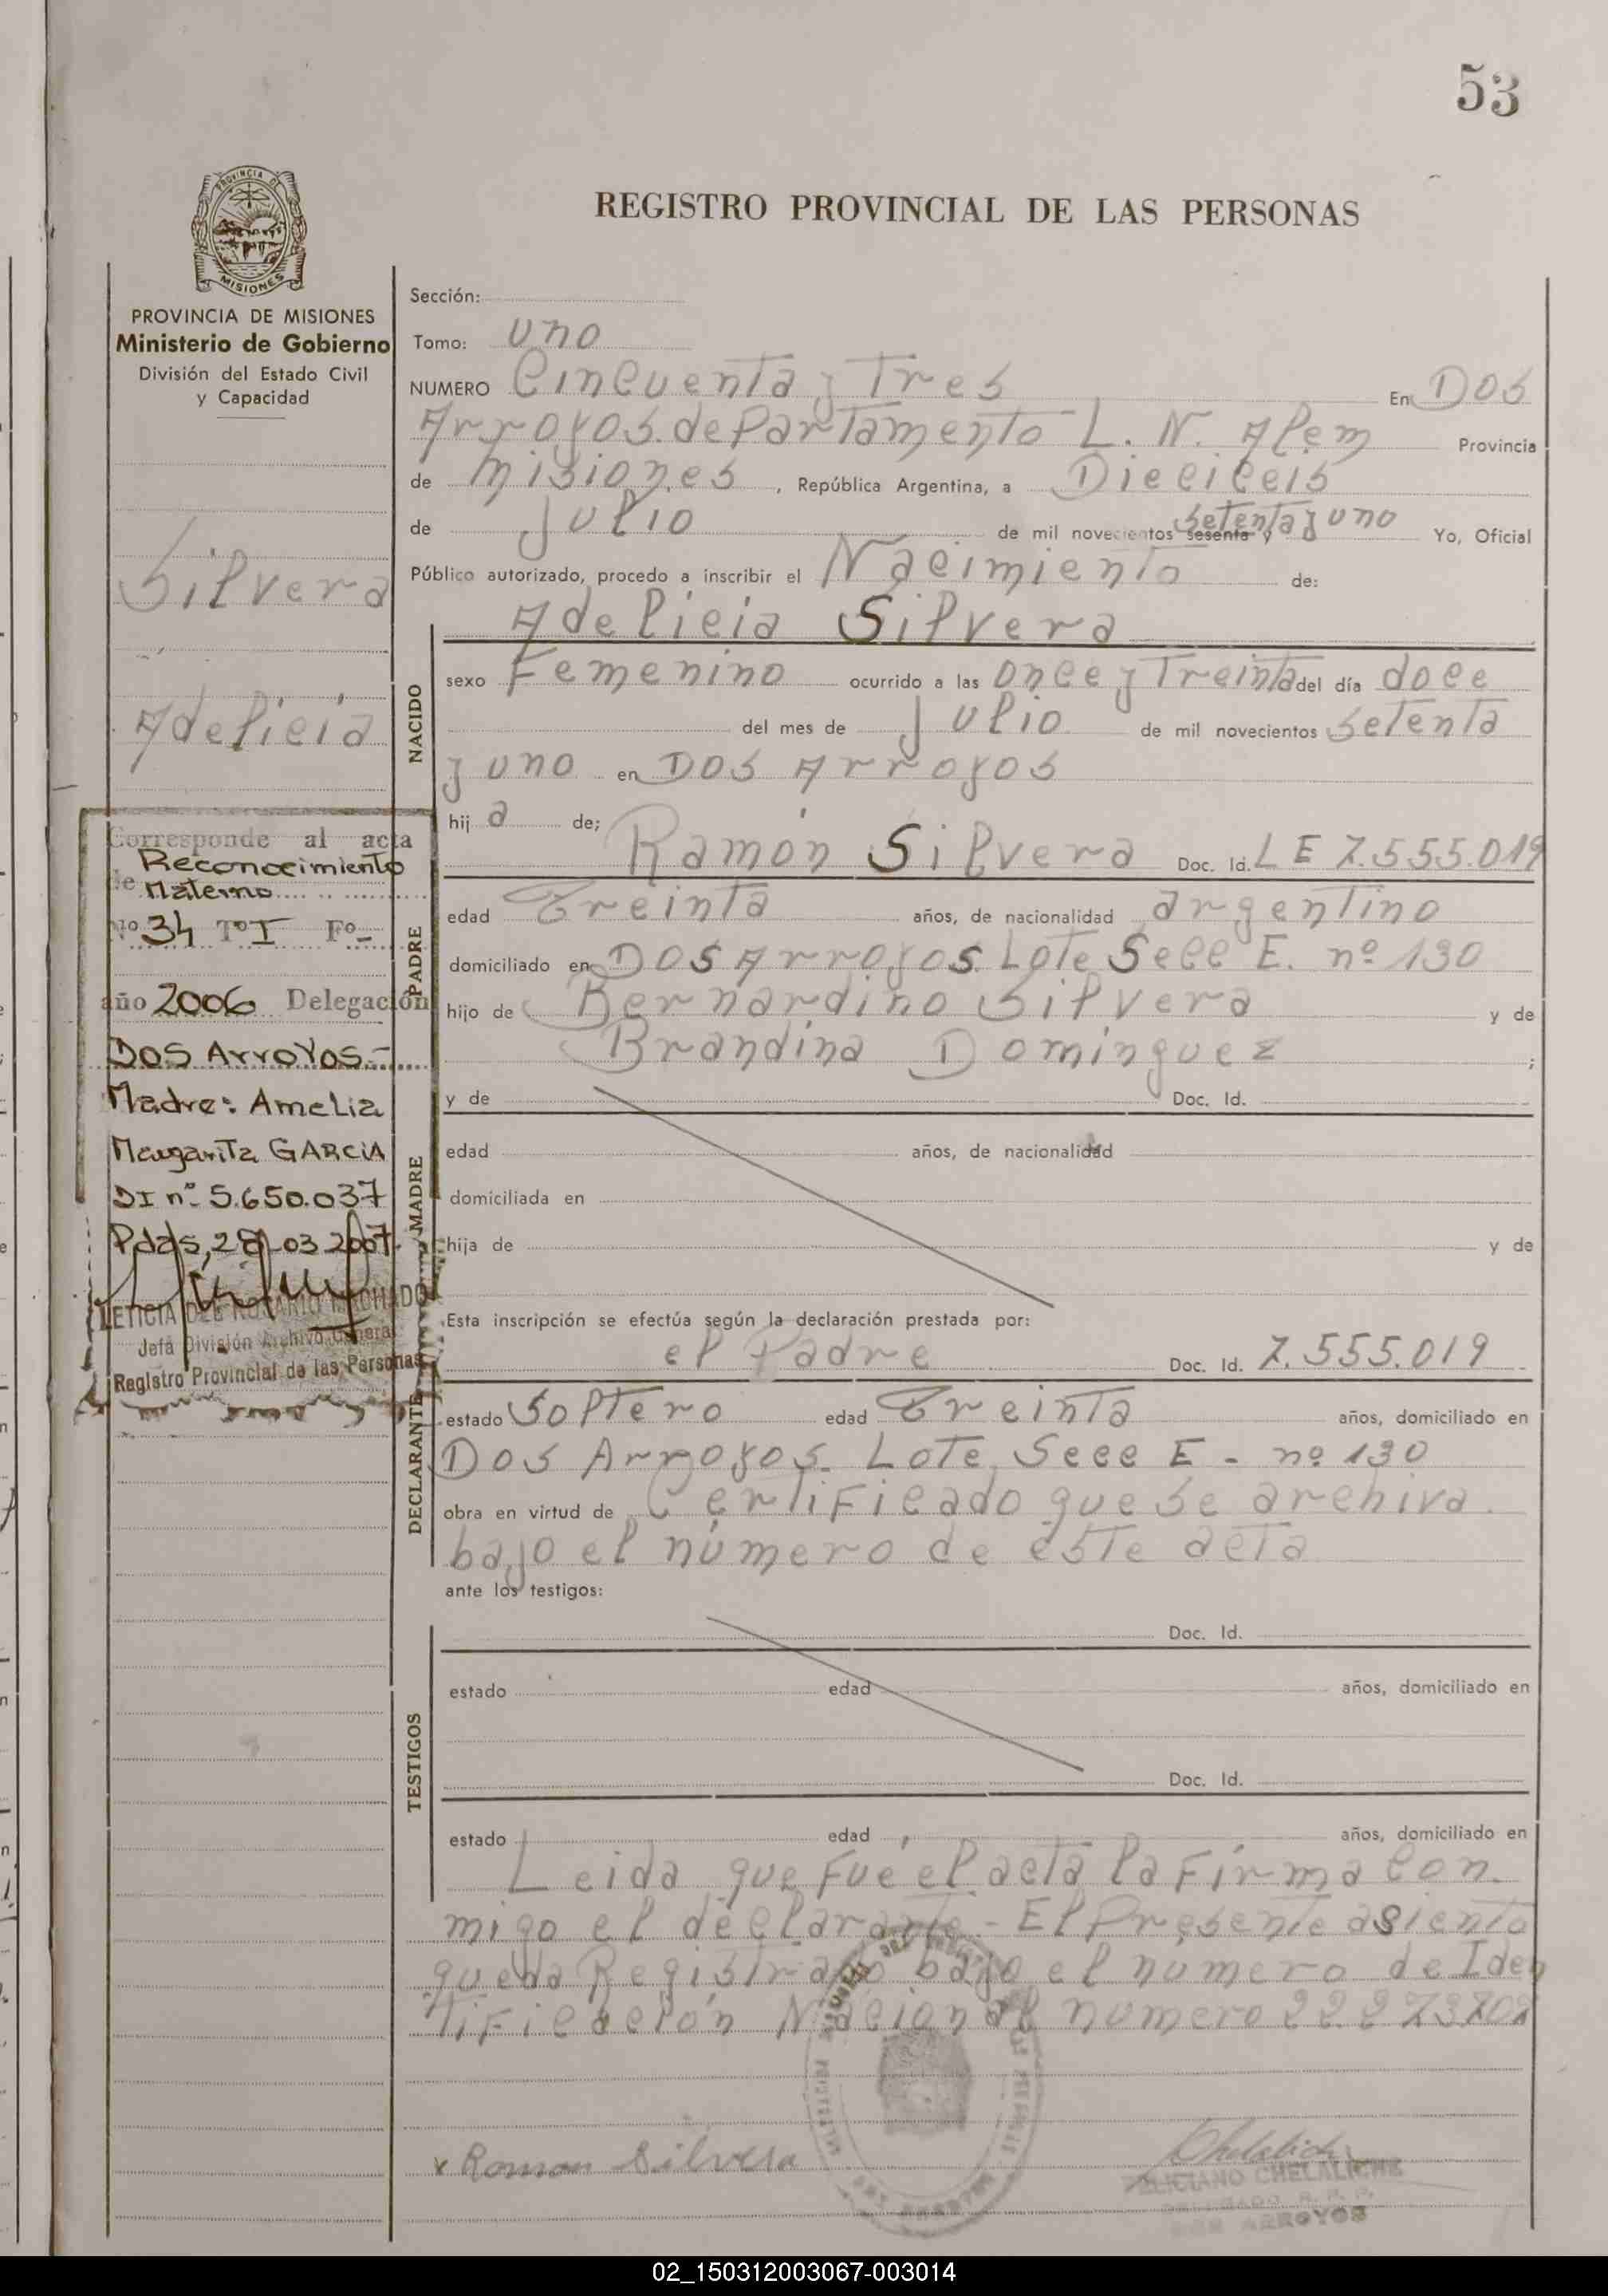 53
REGISTRO PROVINCIAL DE LAS PERSONAS
PROVINCIA DE MISIONES
Ministerio de Gobierno
División del Estado Civil
y Capacidad
Silvera
Adelicia
Corresponde al acta
de Reconocimiento
Materno
Nº 34 Tº I Fº -
año 2006 Delegación
Dos Arroyos.-
Madre: Amelia
Margarita GARCIA
DI nº 5.650.037
Pdas, 28-03 2007.
LETICIA DEL ROSARIO MACHADO
Jefa División Archivo General
Registro Provincial de las Personas
Sección:
Tomo: uno
NUMERO Cincuenta y Tres En Dos
Arroyos. departamento L. N. Alem Provincia
de Misiones, República Argentina, a Dieciceis
de Julio de mil novecientos sesenta y setenta y uno Yo, Oficial
Público autorizado, procedo a inscribir el Nacimiento de:
NACIDO
Adelicia Silvera
sexo Femenino ocurrido a las once y Treinta del día doce
del mes de Julio de mil novecientos setenta
y uno en Dos Arroyos
hij a de;
PADRE
Ramón Silvera Doc. Id. L E 7.555.019
edad Treinta años, de nacionalidad argentino
domiciliado en Dos Arroyos. Lote Secc E. nº 130
hijo de Bernardino Silvera y de
Brandina Dominguez ;
MADRE
y de Doc. Id.
edad años, de nacionalidad
domiciliada en
hija de y de
Esta inscripción se efectúa según la declaración prestada por:
DECLARANTE
el Padre Doc. Id. 7.555.019
estado Soltero edad Treinta años, domiciliado en
Dos Arroyos. Lote Secc E - nº 130
obra en virtud de Certificado que se archiva
bajo el número de este acta
ante los testigos:
TESTIGOS
Doc. Id.
estado edad años, domiciliado en
Doc. Id.
estado edad años, domiciliado en
Leida que fué el acta la Firma con
migo el declarante - El Presente asiento
queda Registrado bajo el número de Iden
tificación Nacional número
Ramon Silvera
FELICIANO CHELALICHE
DELEGADO R. P. P.
DOS ARROYOS
02_150312003067-003014